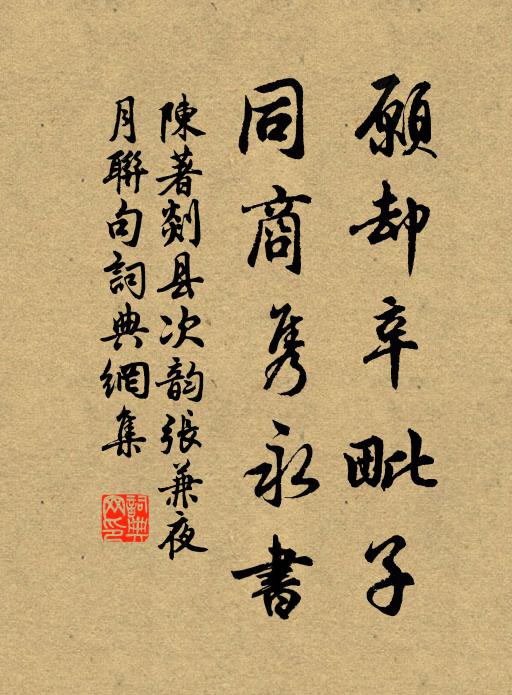 願却辛毗子
同商隽永書
陳著剡县次韵張兼夜
月聯句詞典網集
詞典
网印